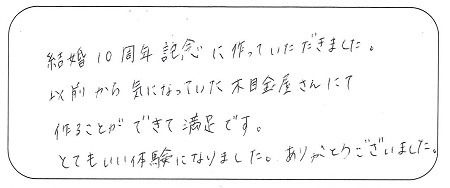 結婚10周年記念に作っていただきました。
以前から気になっていた木目金屋さんにて
作ることができて満足です。
とてもいい体験になりました。ありがとうございました。